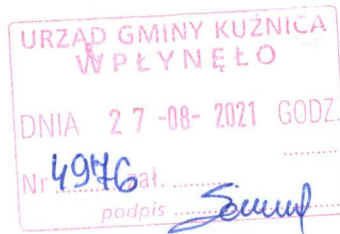 URZĄD GMINY KUŹNICA
WPŁYNĘŁO
DNIA 27 -08- 2021 GODZ.
............
Nr 4976 zał. ............
podpis ............